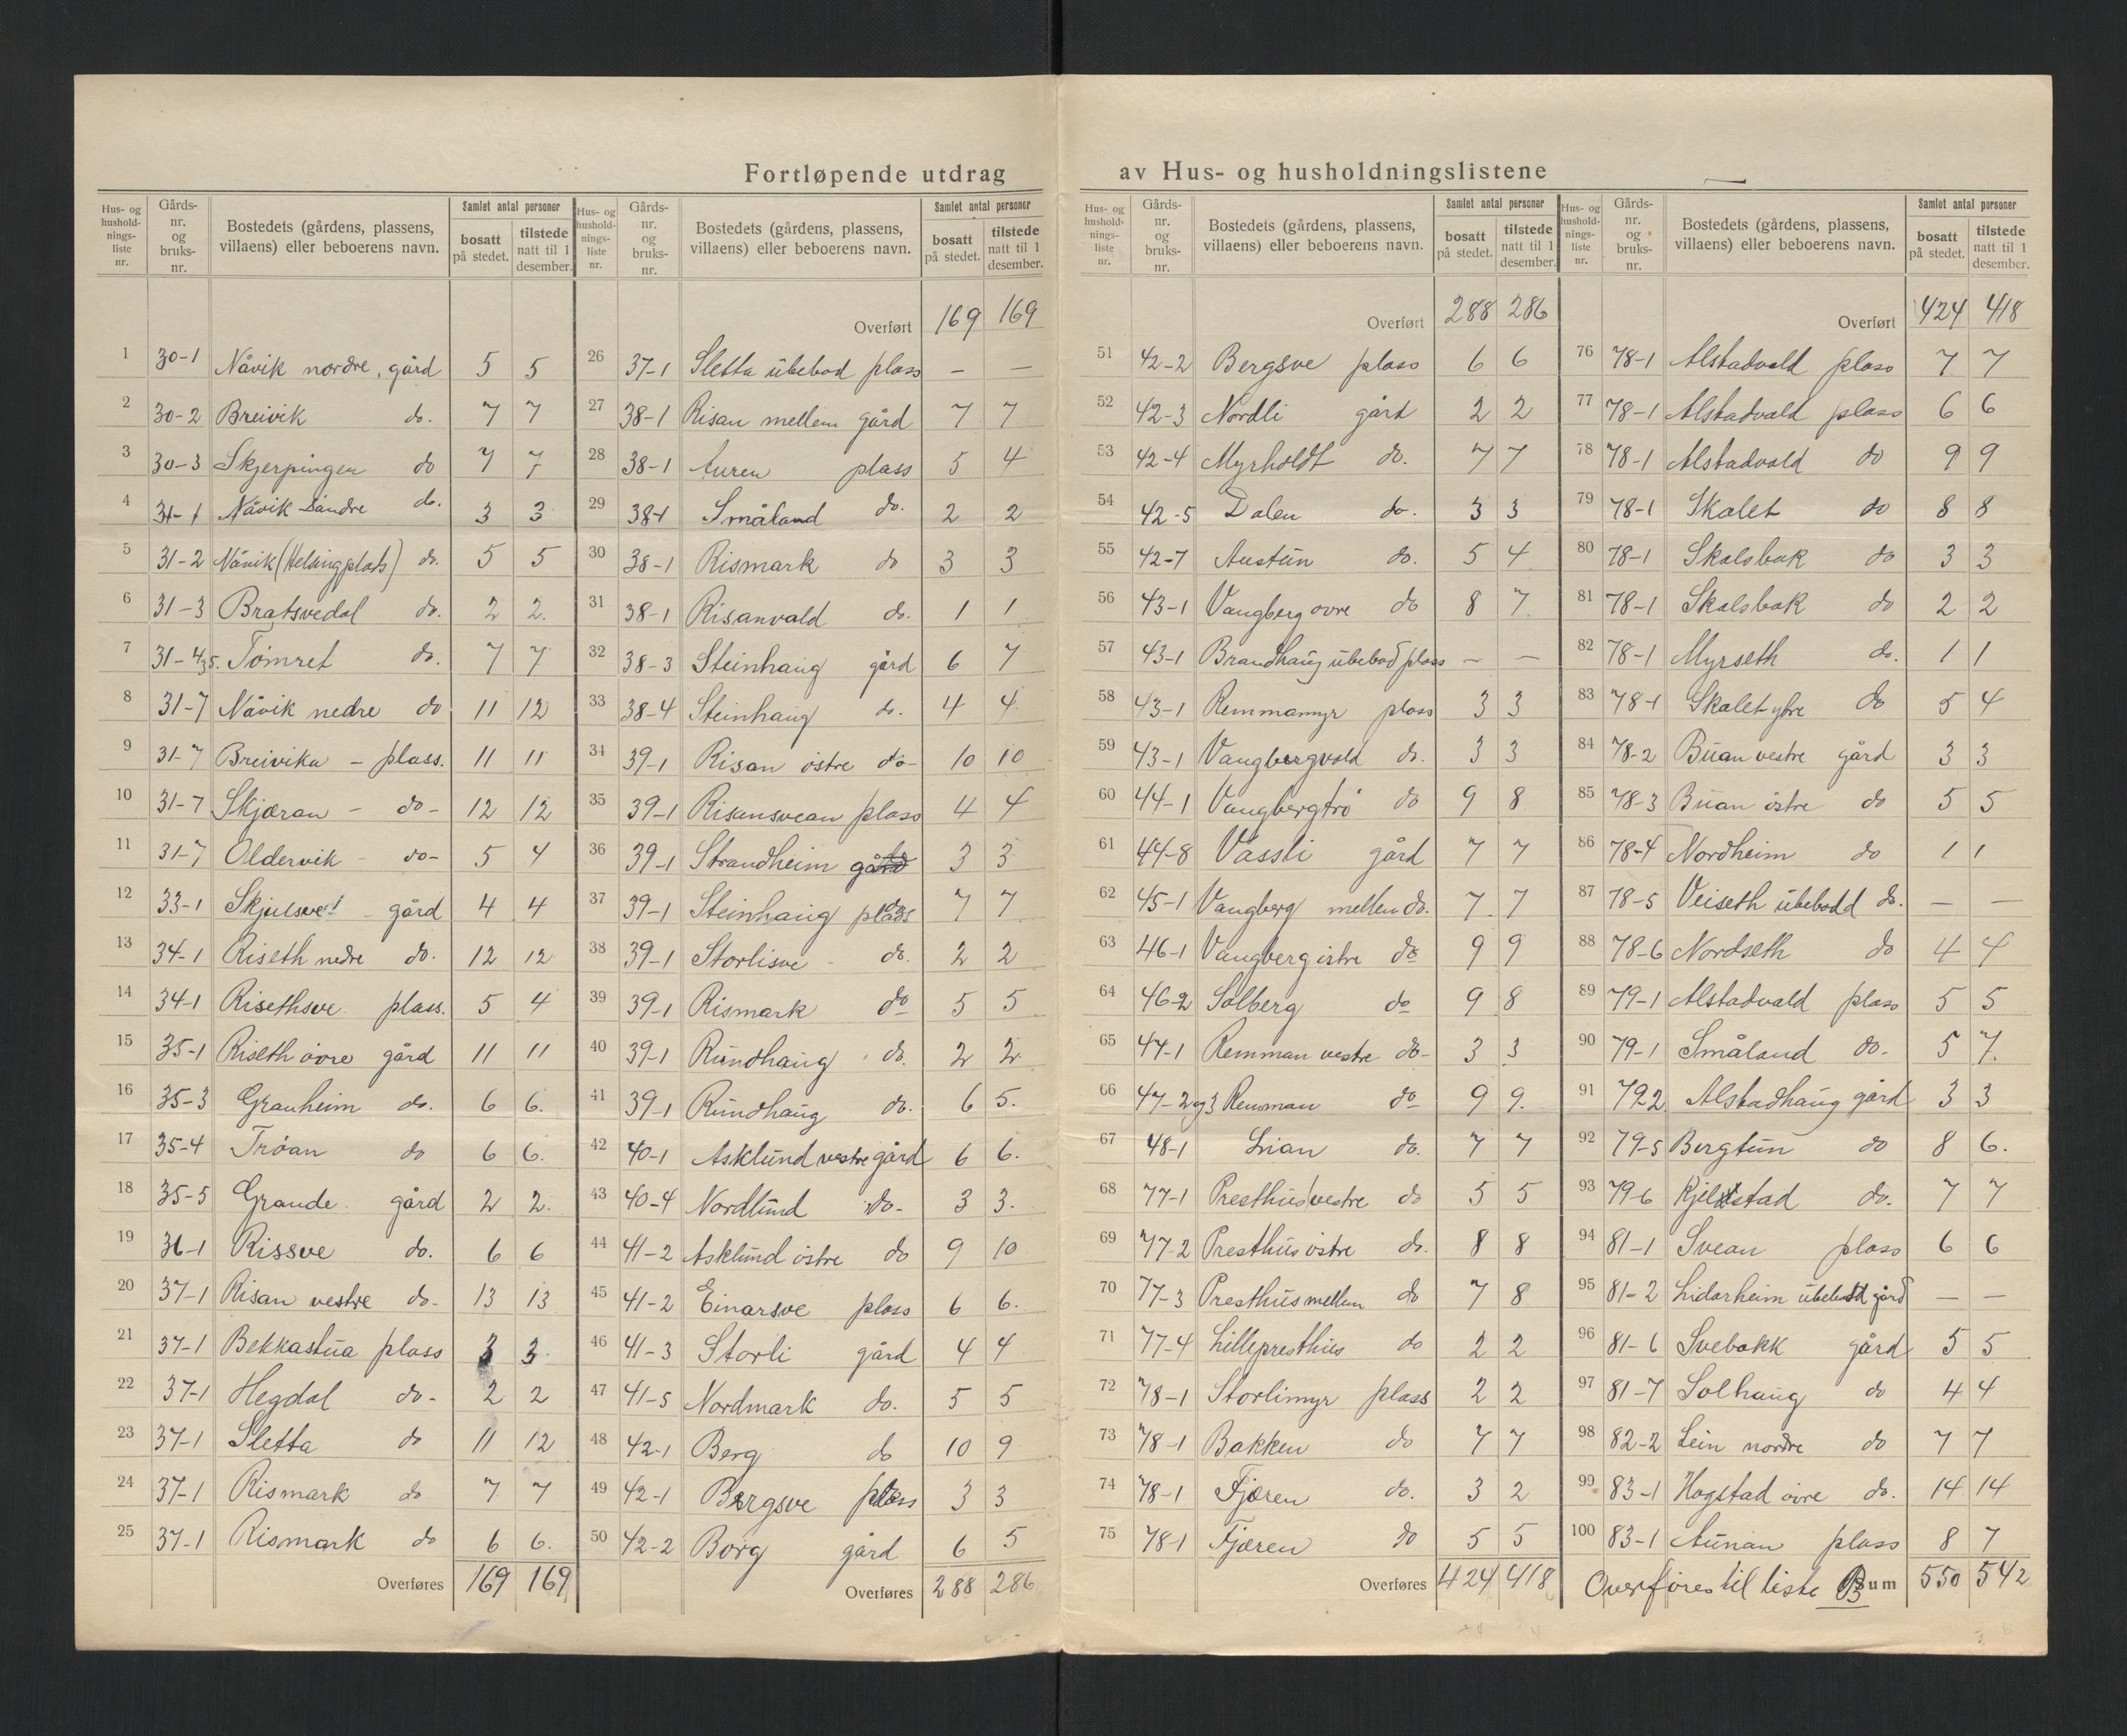 Fortløpende utdrag av Hus- og husholdningslistene
Hus- og husholdningsliste nr. | Gårds-nr. og bruks-nr. | Bostedets (gårdens, plassens, villaens) eller beboerens navn. | Samlet antal personer bosatt på stedet. | tilstede natt til 1 desember.
1 30-1 Nåvik nordre, gård 5 5
2 30-2 Breivik do. 7 7
3 30-3 Skjerpingen do 7 7
4 31-1 Nåvik søndre do. 3 3
5 31-2 Nåvik (Helsingplads) do. 5 5
6 31-3 Bratsvedal do. 2 2.
7 31-4,5. Tømret do. 7 7
8 31-7 Nåvik nedre do 11 12
9 31-7 Breivika - plass. 11 11
10 31-7 Skjæran - do- 12 12
11 31-7 Oldervik - do- 5 4
12 33-1 Skjulsvet - gård 4 4
13 34-1 Riseth nedre do. 12 12
14 34-1 Risethsve plass. 5 4
15 35-1 Riseth øvre gård 11 11
16 35-3 Granheim do. 6 6.
17 35-4 Trøan do 6 6.
18 35-5 Grande gård 2 2.
19 36-1 Rissve do. 6 6
20 37-1 Risan vestre do- 13 13
21 37-1 Bekkastua plass 3 3
22 37-1 Hegdal do- 2 2
23 37-1 Sletta do 11 12
24 37-1 Rismark do 7 7
25 37-1 Rismark do 6 6.
Overføres 169 169
Hus- og husholdningsliste nr. | Gårds-nr. og bruks-nr. | Bostedets (gårdens, plassens, villaens) eller beboerens navn. | Samlet antal personer bosatt på stedet. | tilstede natt til 1 desember.
Overført 169 169
26 37-1 Sletta ubebod plass - -
27 38-1 Risan mellem gård 7 7
28 38-1 Auren plass 5 4
29 38-1 Småland do. 2 2
30 38-1 Rismark do 3 3
31 38-1 Risanvald do. 1 1
32 38-3 Steinhaug gård 6 7
33 38-4 Steinhaug do. 4 4
34 39-1 Risan østre do- 10 10
35 39-1 Risansvean plass 4 4
36 39-1 Strandheim gård do 3 3
37 39-1 Steinhaug plass do 7 7
38 39-1 Storlisve - do. 2 2
39 39-1 Rismark do 5 5
40 39-1 Rundhaug do. 2 2
41 39-1 Rundhaug do. 6 5.
42 40-1 Asklund vestre gård 6 6.
43 40-4 Nordlund do- 3 3.
44 41-2 Asklund østre do 9 10
45 41-2 Einarsve plass 6 6.
46 41-3 Storli gård 4 4
47 41-5 Nordmark do. 5 5
48 42-1 Berg do 10 9
49 42-1 Bergsve plass 3 3
50 42-2 Borg gård 6 5
Overføres 288 286
Hus- og husholdningsliste nr. | Gårds-nr. og bruks-nr. | Bostedets (gårdens, plassens, villaens) eller beboerens navn. | Samlet antal personer bosatt på stedet. | tilstede natt til 1 desember.
Overført 288 286
51 42-2 Bergsve plass 6 6
52 42-3 Nordli gård 2 2
53 42-4 Myrholdt do. 7 7
54 42-5 Dalen do. 3 3
55 42-7 Austun do. 5 4
56 43-1 Vangberg øvre do 8 7
57 43-1 Brandhaug ubebod plass - -
58 43-1 Remmamyr plass 3 3
59 43-1 Vangbergvald do. 3 3
60 44-1 Vangbergtrø do 9 8
61 44-8 Vassli gård 7 7
62 45-1 Vangberg mellem do. 7 7
63 46-1 Vangberg østre do 9 9
64 46-2 Solberg do 9 8
65 47-1 Remman vestre do- 3 3
66 47-2og3 Remman do 9 9.
67 48-1 Lian do. 7 7
68 77-1 Presthus vestre do 5 5
69 77-2 Presthus østre do. 8 8
70 77-3 Presthus mellem do 7 8
71 77-4 Lillepresthus do 2 2
72 78-1 Storlimyr plass 2 2
73 78-1 Bakken do 7 7
74 78-1 Fjæren do. 3 2
75 78-1 Fjæren do 5 5
Overføres 424 418
Hus- og husholdningsliste nr. | Gårds-nr. og bruks-nr. | Bostedets (gårdens, plassens, villaens) eller beboerens navn. | Samlet antal personer bosatt på stedet. | tilstede natt til 1 desember.
Overført 424 418
76 78-1 Alstadvald plass 7 7
77 78-1 Alstadvald plass 6 6
78 78-1 Alstadvald do 9 9
79 78-1 Skalet do 8 8
80 78-1 Skalsbak do 3 3
81 78-1 Skalsbak do 2 2
82 78-1 Myrseth do. 1 1
83 78-1 Skalet ytre do 5 4
84 78-2 Buan vestre gård 3 3
85 78-3 Buan østre do 5 5
86 78-4 Nordheim do 1 1
87 78-5 Veiseth ubebodd do. - -
88 78-6 Nordseth do 4 4
89 79-1 Alstadvald plass 5 5
90 79-1 Småland do- 5 7.
91 79 2 Alstadhaug gård 3 3
92 79-5 Bergtun do 8 6.
93 79-6 Kjelstad do. 7 7
94 81-1 Svean plass 6 6
95 81-2 Lidarheim ubebodd gård - -
96 81-6 Svebakk gård 5 5
97 81-7 Solhaug do 4 4
98 82-2 Lein nordre do 7 7
99 83-1 Hogstad øvre do. 14 14
100 83-1 Aunan plass 8 7
Overføres til liste B Sum 550 542